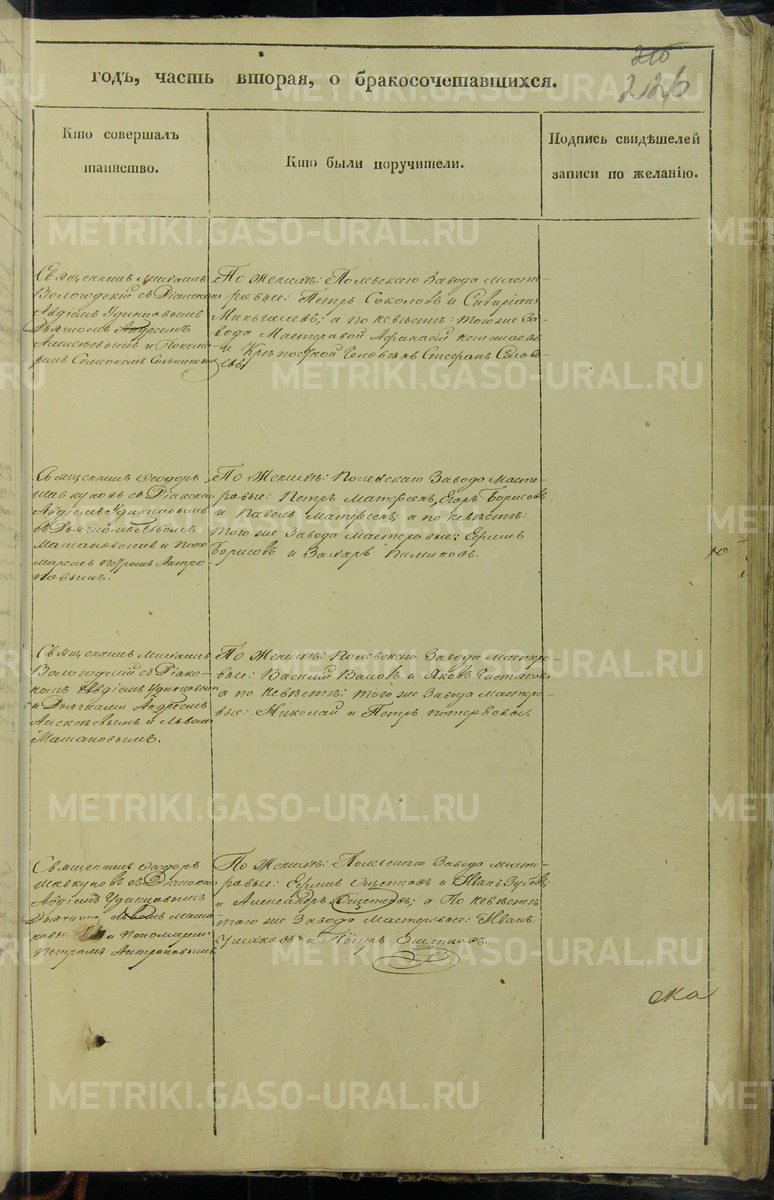 226
годъ, часть вторая, о бракосочетавшихся.
Кто совершалъ
таинство.
Кто были поручители.
Подпись свидѣтелей
записи по желанію.
Священникъ Михаилъ
Вологодскій съ Діакономъ
Авдіемъ Удинцовымъ
Дьячкомъ Андреемъ
Алексѣевымъ и Понома-
ремъ Симеономъ
По Женихѣ: Полевскаго Завода Масте-
ровые: Петръ Соколовъ и
а по невѣстѣ: того же За-
вода Мастеровой Афанасій
и Крѣпостной Человѣкъ Стефанъ Соловь-
евы
Священникъ Ѳеодоръ
съ Діакономъ
Авдіемъ Удинцовымъ
съ Дьячкомъ Львомъ
и Поно-
маремъ Петромъ Антро-
повымъ.
По Женихѣ: Полевскаго Завода Масте-
ровые: Петръ Матвеевъ, Егоръ Борисовъ
и Павелъ Матвеевъ; а по невѣстѣ:
того же Завода мастеровые: Ермилъ
Борисовъ и Захаръ Пимиковъ.
Священникъ Михаилъ
Вологодскій съ Діако-
номъ Авдіемъ Удинцовымъ
и Дьячками Андреемъ
Алексѣевымъ и Львомъ
По Женихѣ: Полевскаго Завода мастеро-
вые: Василій и Яковъ
а по невѣстѣ: того же Завода мастеро-
вые: Николай и Петръ Потеряевы.
Священникъ Ѳеодоръ
съ Діакономъ
Авдіемъ Удинцовымъ
Дьячкомъ Львомъ
и Пономаремъ
Петромъ Антроповымъ
По Женихѣ: Полевскаго Завода масте-
ровые: Ермилъ и Иванъ Зубовъ
и Александръ а по невѣстѣ
того же Завода Мастеровые: Иванъ
Ушаковъ и Петръ
ека
METRIKI.GASO-URAL.RU